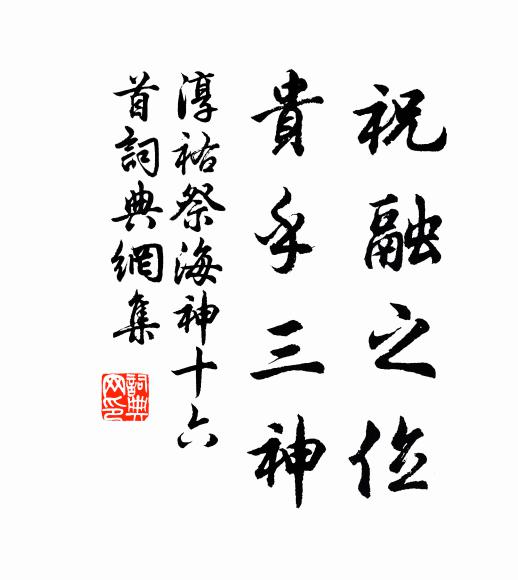 祝融之位
貴乎三神
淳祐祭海神十六
首詞典網集
詞典
网印